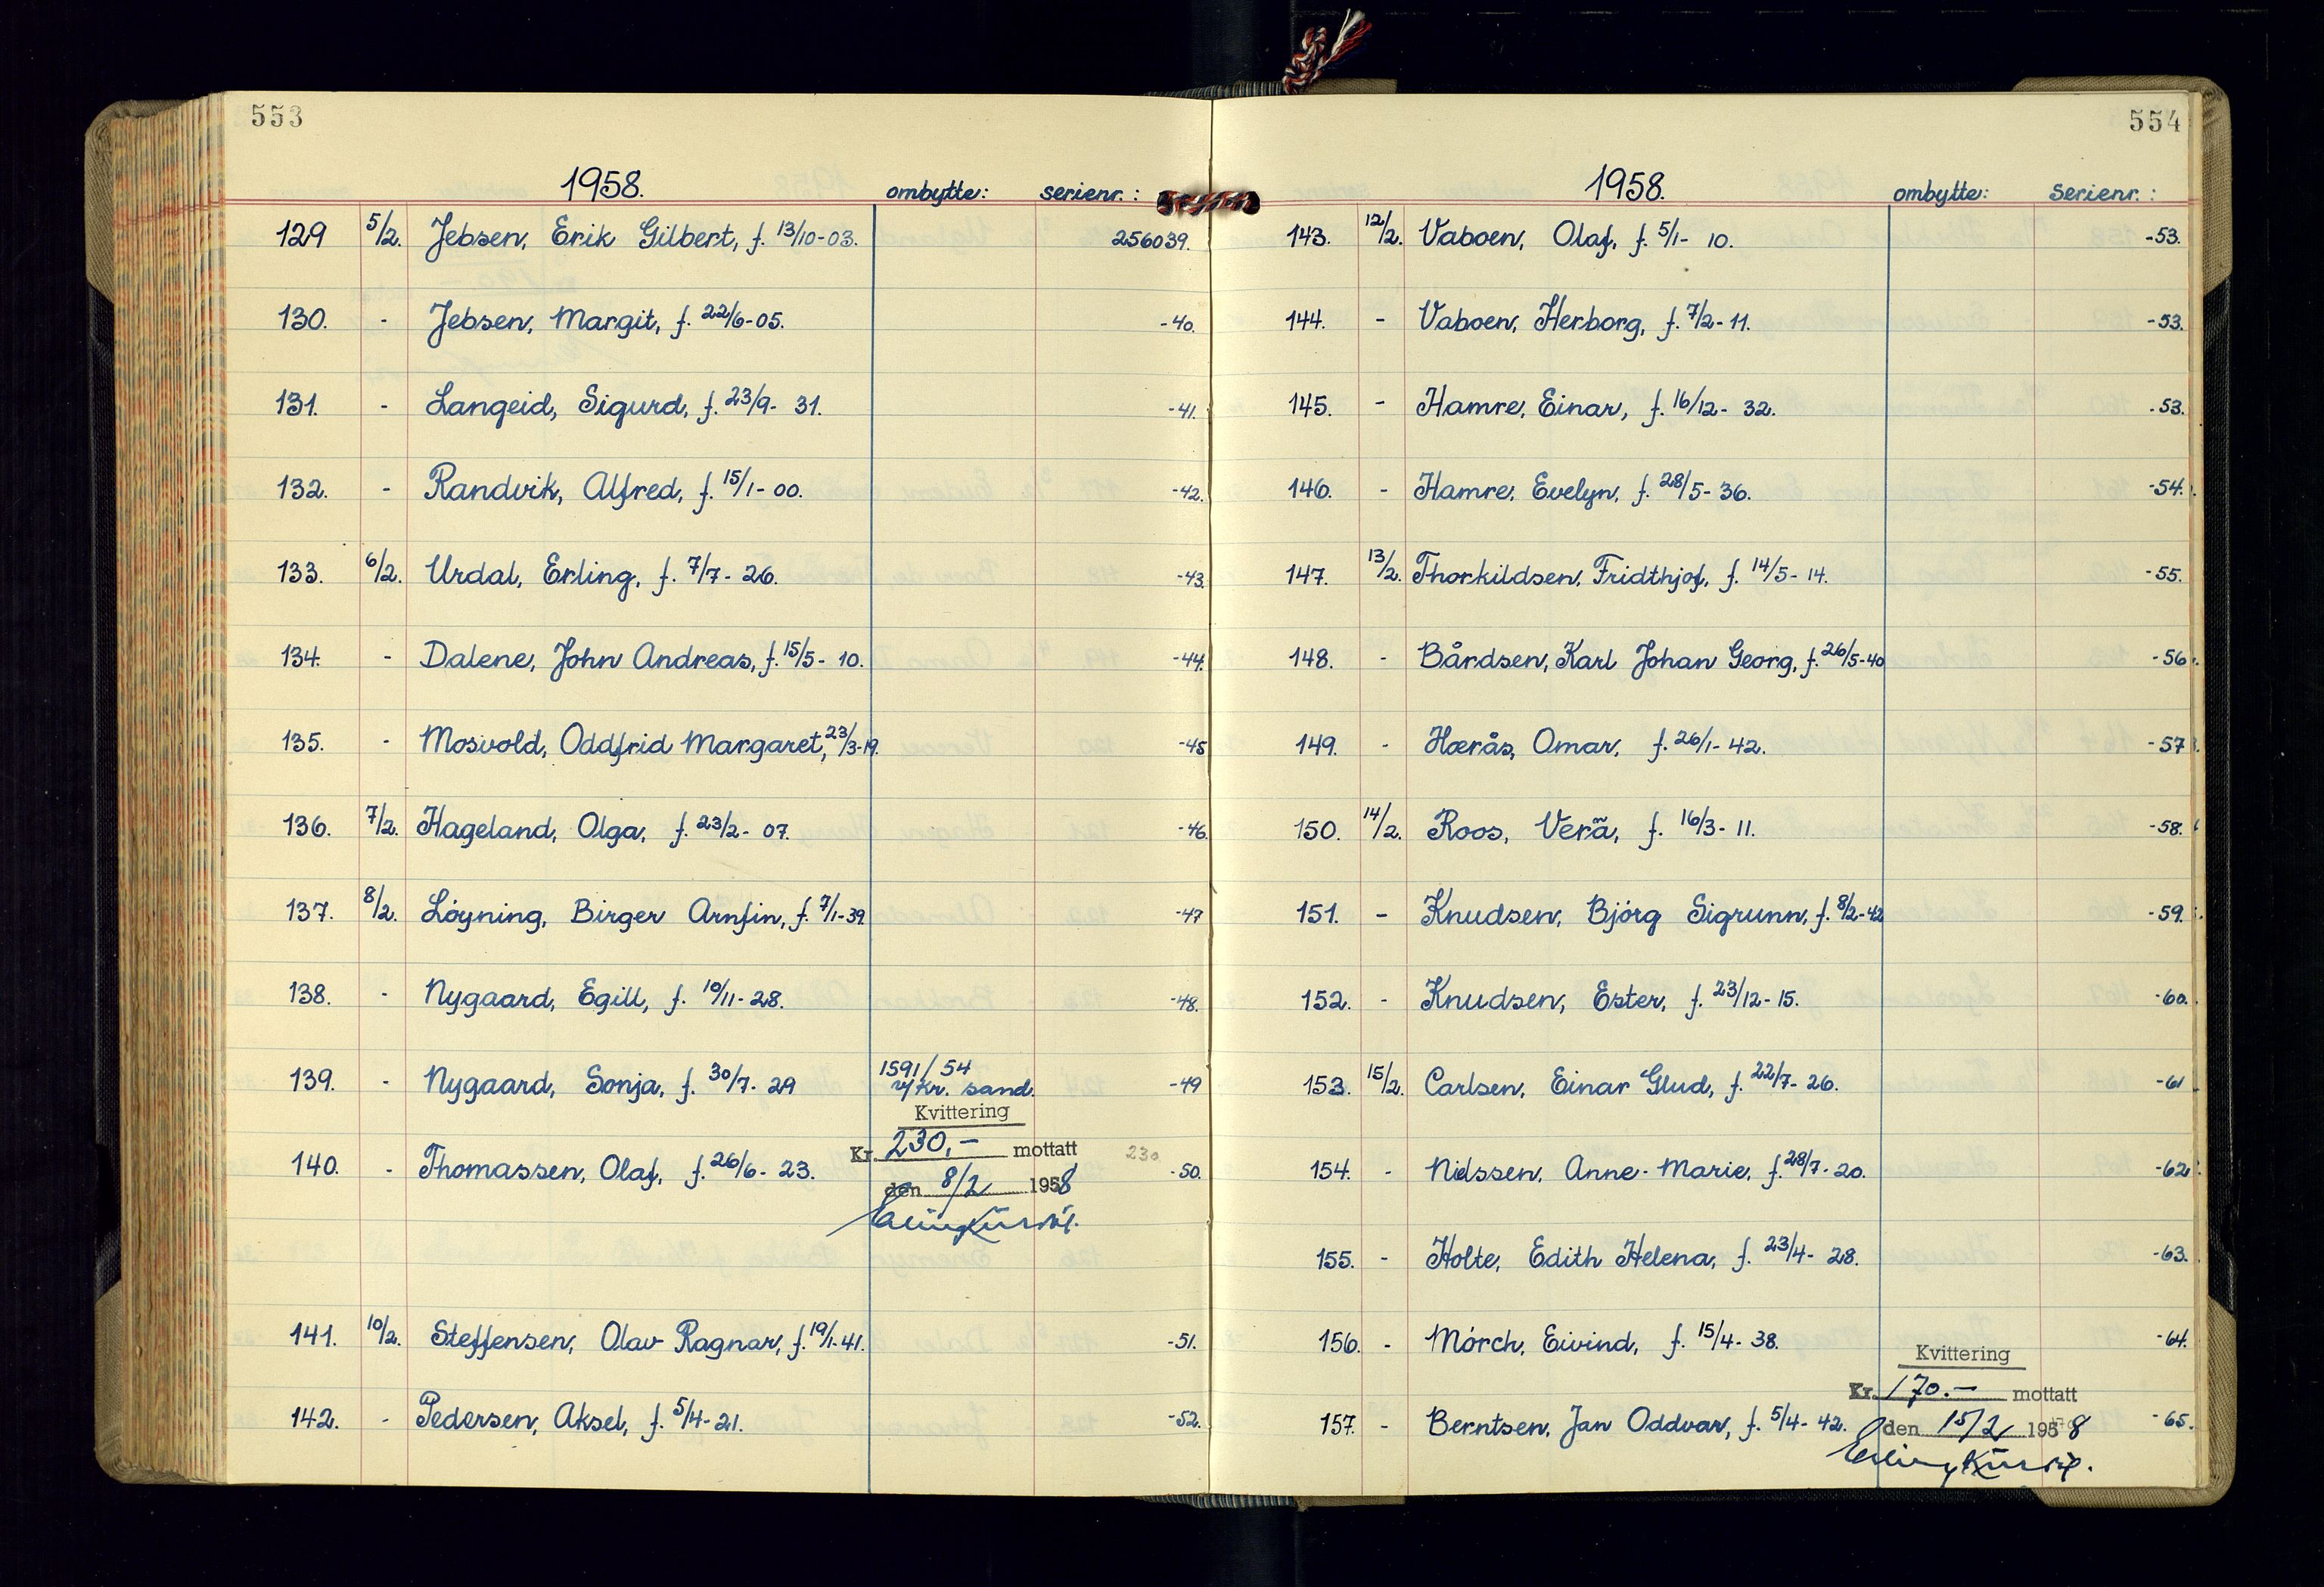 553
1958. ombytte: serienr.:
129 5/2. Jebsen, Erik Gilbert, f. 13/10-03. 256039.
130. - Jebsen, Margit, f. 22/6-05. -40.
131. - Langeid, Sigurd, f. 23/9- 31. -41.
132. - Randvik, Alfred, f. 15/1- 00. -42.
133. 6/2. Urdal, Erling, f. 7/7- 26. -43.
134. - Dalene, John Andreas, f. 15/5- 10. -44.
135. - Mosvold, Oddfrid Margaret, 23/3-19. -45
136. 7/2. Hageland, Olga, f. 23/2- 07. -46.
137. 8/2. Löyning, Birger Arnfin, f. 7/1-39. -47
138. - Nygaard, Egill, f. 10/11- 28. -48.
139. - Nygaard, Sonja, f. 30/7- 29 1591/54 v/Kr. sand. -49
Kvittering
Kr. 230,- mottatt 230
140. - Thomassen, Olaf, f. 26/6- 23. -50.
den 8/2 1958
141. 10/2. Steffensen, Olav Ragnar, f. 19/1-41. -51.
142. - Pedersen, Aksel, f. 5/4-21. -52.
554
1958. ombytte: serienr.:
143. 12/2. Vaboen, Olaf, f. 5/1- 10. -53.
144. - Vaboen, Herborg, f. 7/2- 11. -53.
145. - Hamre, Einar, f. 16/12- 32. -53.
146. - Hamre, Evelyn, f. 28/5- 36. -54.
147. 13/2. Thorkildsen, Fridthjof, f. 14/5- 14. -55.
148. - Bårdsen, Karl Johan Georg, f. 26/5-40 -56.
149. - Hærås, Omar, f. 26/1- 42. -57
150. 14/2. Roos, Vera, f. 16/3- 11. -58.
151. - Knudsen, Bjórg Sigrunn, f. 8/2-42 -59.
152. - Knudsen, Ester, f. 23/12- 15. -60.
153. 15/2. Carlsen, Einar Glud, f. 22/7- 26. -61
154. - Nilssen, Anne-Marie, f. 28/7- 20. -62
155. - Holte, Edith Helena, f. 23/4- 28. -63.
156. - Mórch, Eivind, f. 15/4- 38. -64.
Kvittering
Kr. 170.- mottatt
157. - Berntsen, Jan Oddvar, f. 5/4- 42. -65.
den 15/2 1958